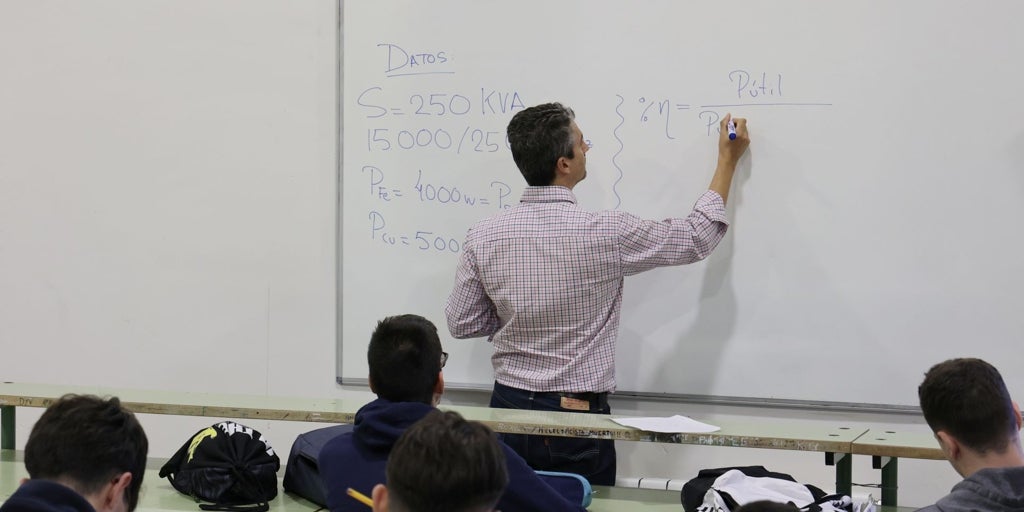 DATOS:
S = 250 KVA
15000/25
PFe = 4000w = P
Pcu = 500
%η = Pútil
P